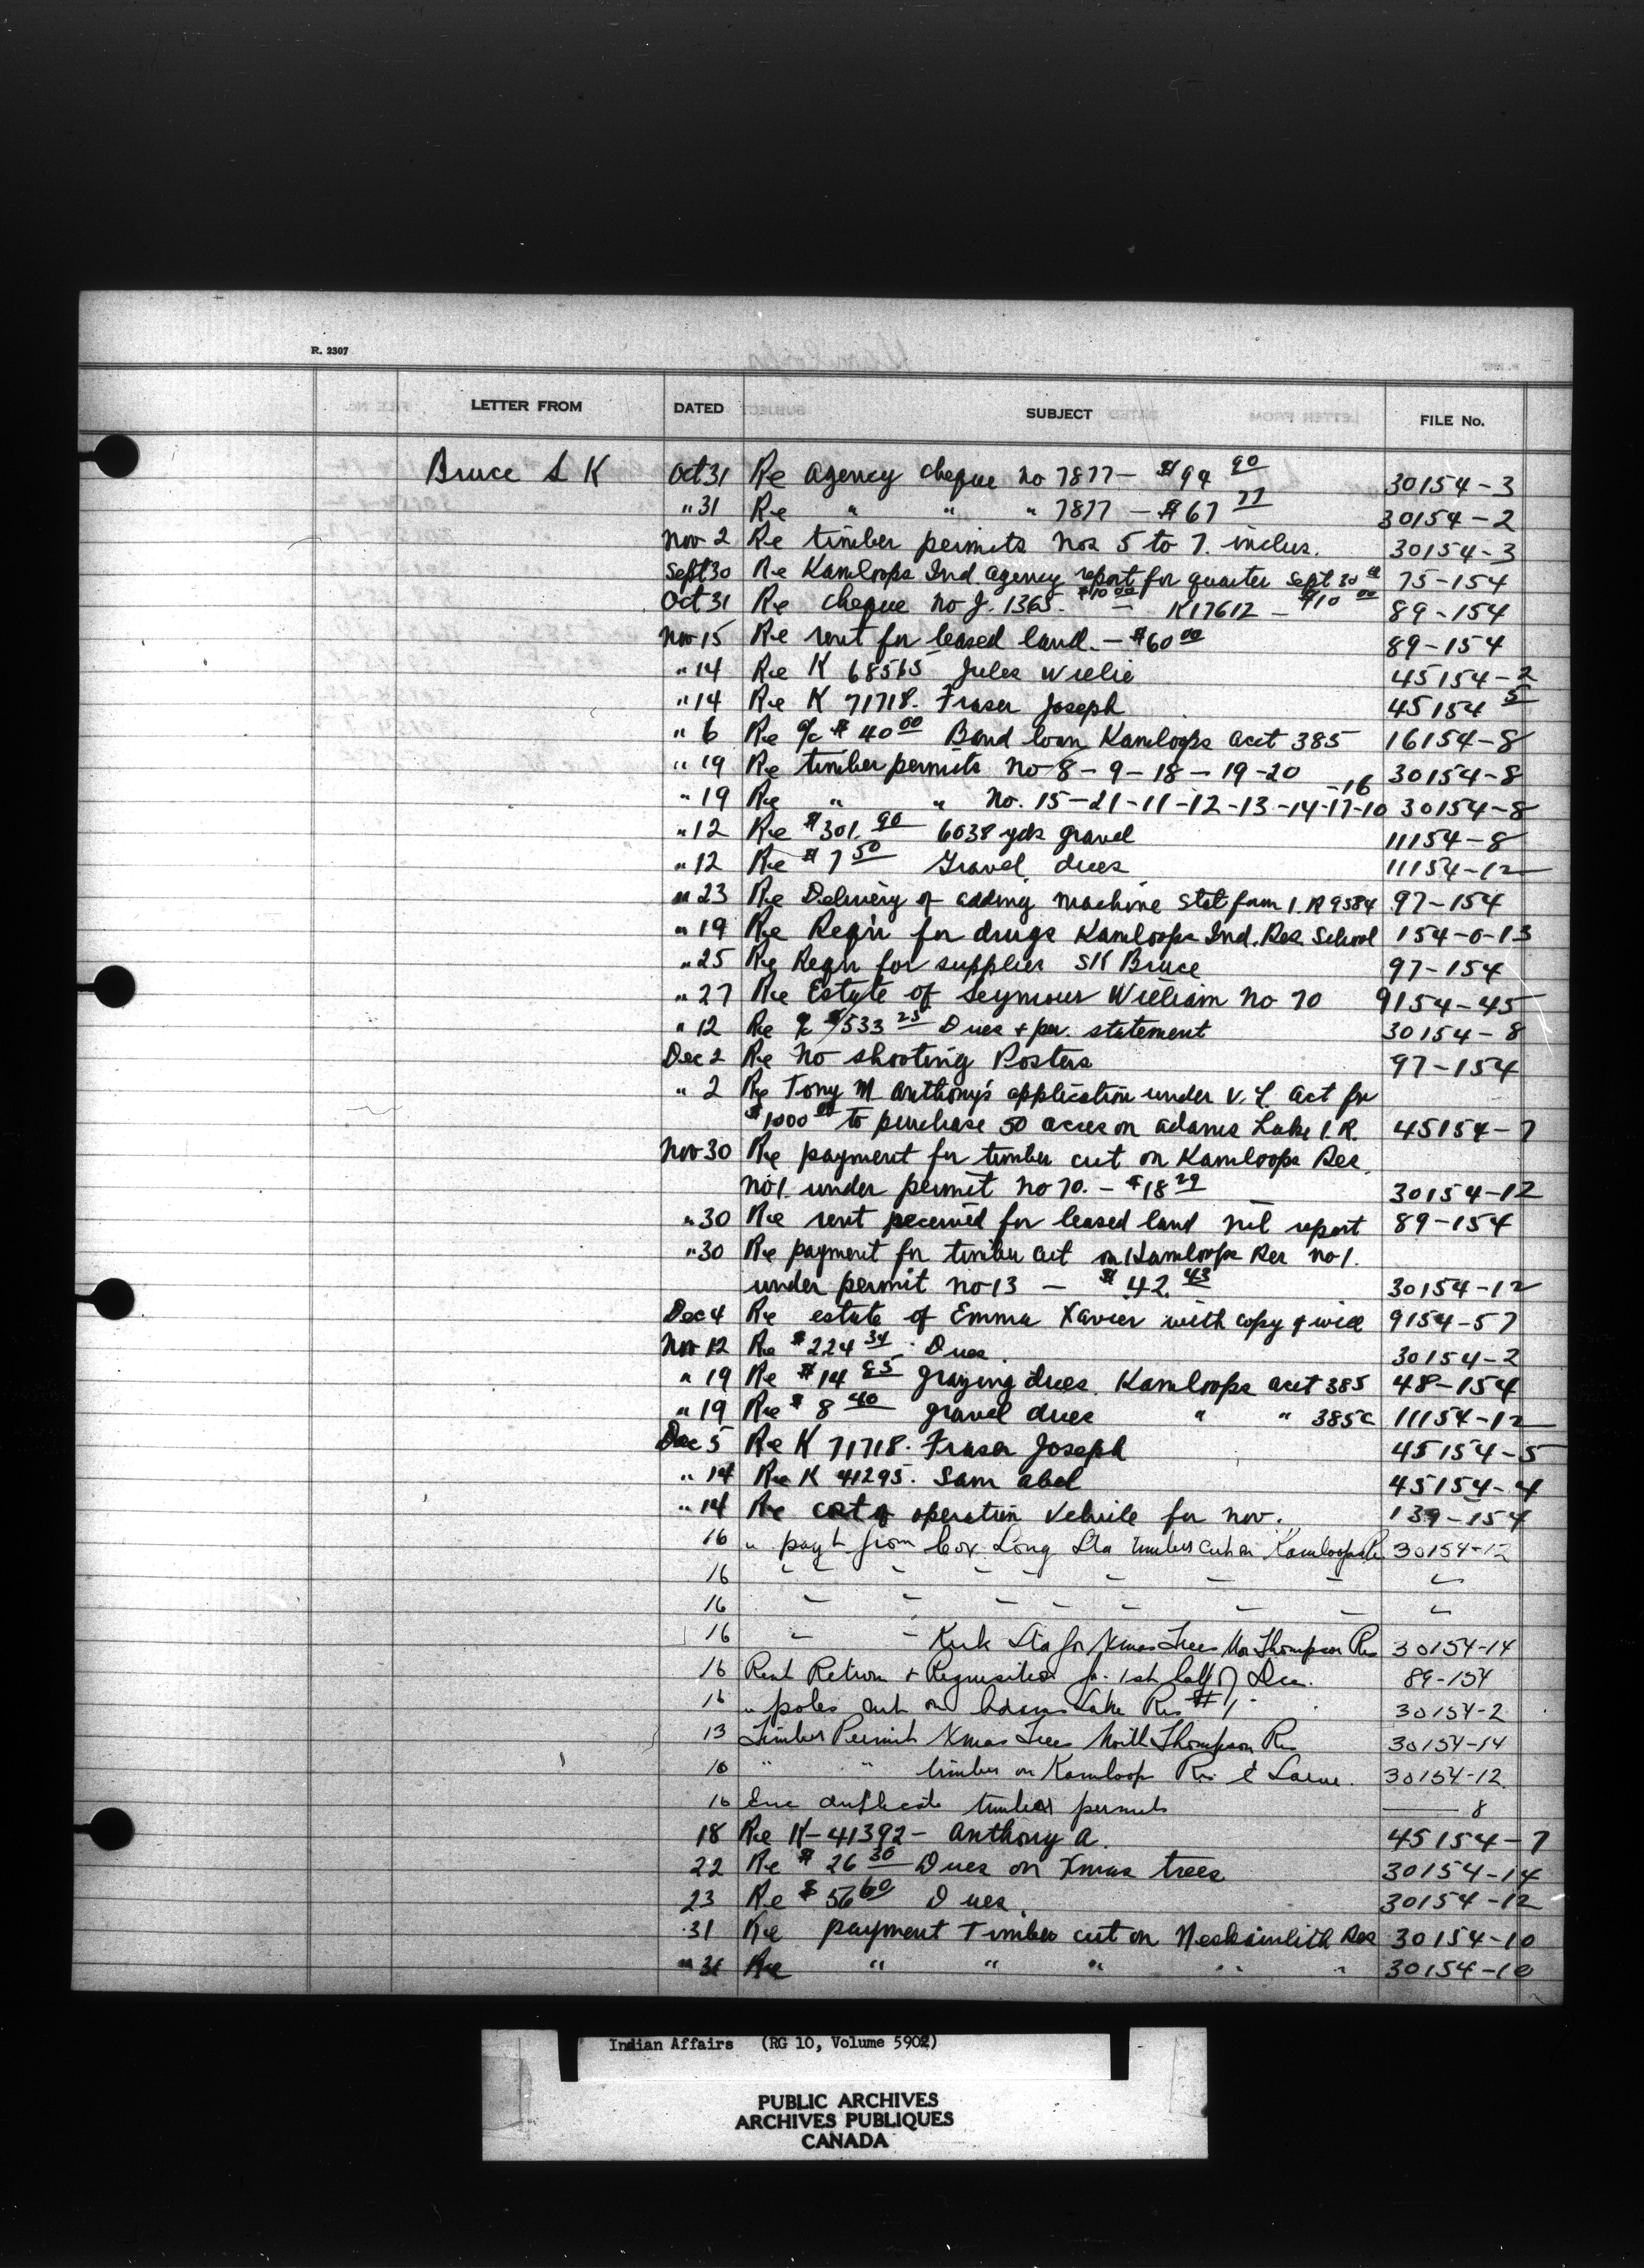 R. 2307
LETTER FROM DATED SUBJECT FILE No.
Bruce S K Oct 31 Re Agency cheque no 7877 - $94 90 30154-3
" 31 Re " " " 7877 - $67 77 30154-2
Nov 2 Re timber permits Nos 5 to 7. inclus. 30154-3
Sept 30 Re Kamloops Ind. Agency report for quarter Sept 30th 75-154
Oct 31 Re cheque No J. 1365. $10 00 - K17612 - $10 00 89-154
Nov 15 Re rent for leased land. - $60 00 89-154
" 14 Re K 68565 Jules Willie 45154-2
" 14 Re K 71718. Fraser Joseph 45154 5
" 6 Re o/c $40 00 Band loan Kamloops acct 385 16154-8
" 19 Re timber permits No 8-9-18-19-20 30154-8
" 19 Re " " No. 15-21-11-12-13-14-17-10 -16 30154-8
" 12 Re $301. 90 6038 yds gravel 11154-8
" 12 Re $7 50 Gravel dues 11154-12
" 23 Re Delivery of adding machine Stat form I.R 9384 97-154
" 19 Re Reqn for drugs Kamloops Ind. Res School 154-0-13
" 25 Re Reqn for supplies SK Bruce 97-154
" 27 Re Estate of Seymour William No 70 9154-45
" 12 Re o/c $1533 25 Dues + per statement 30154-8
Dec 2 Re No shooting Posters 97-154
" 2 Re Tony M Anthony's application under V.L. act for
$1000 00 to purchase 50 acres on Adams Lake I.R. 45154-7
Nov 30 Re payment for timber cut on Kamloops Res
No 1. under permit No 70. - $18 29 30154-12
" 30 Re rent received for leased land nil report 89-154
" 30 Re payment for timber cut on Kamloops Res No 1.
under permit No 13 - $42. 43 30154-12
Dec 4 Re estate of Emma Xavier with copy of will 9154-57
Nov 12 Re $224 34. Dues 30154-2
" 19 Re $14 85 grazing dues. Kamloops acct 385 48-154
" 19 Re $8 40 gravel dues " " 385c 11154-12
Dec 5 Re K 71718. Fraser Joseph 45154-5
" 14 Re K 41295. Sam Abel 45154-4
" 14 Re cost of operation vehicle for Nov. 139-154
16 " payt from Cox Long Sta timber cut on Kamloops R 30154-12
16 " " " " " " " " "
16 " " " " " " " " "
16 " " Kirk Sta for Xmas Trees No Thompson Res 30154-14
16 Rent Return + Requisition for 1st half of Dec. 89-154
16 " poles cut on Adams Lake Res #1. 30154-2
13 Timber Permit Xmas Trees North Thompson Res 30154-14
16 " " timber on Kamloops Res 30154-12
16 Enc duplicate timber permits — 8
18 Re K-41392- Anthony A. 45154-7
22 Re $26 30 Dues on Xmas trees 30154-14
23 Re $56 60 Dues. 30154-12
31 Re payment Timber cut on Neskainlith Res 30154-10
" 31 Re " " " " " 30154-10
Indian Affairs (RG 10, Volume 5902)
PUBLIC ARCHIVES
ARCHIVES PUBLIQUES
CANADA